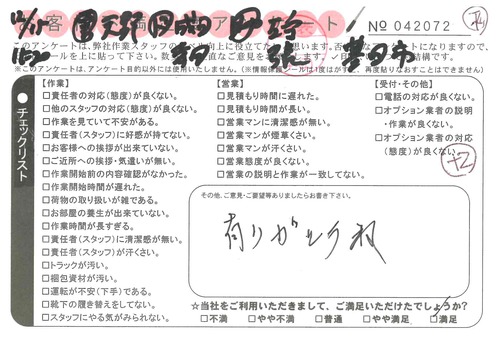 客 アンケート
No 042072
このアンケートは、弊社作業スタッフの
※このアンケートは、アンケート目的以外には使用いたしません。(※情報保護シールは1度はがすと、再度貼りなおすことはできません)
チェックリスト
【作業】
□責任者の対応(態度)が良くない。
□他のスタッフの対応(態度)が良くない。
□作業を見ていて不安がある。
□責任者(スタッフ)に好感が持てない。
□お客様への挨拶が出来ていない。
□ご近所への挨拶・気遣いが無い。
□作業開始前の内容確認がなかった。
□作業開始時間が遅れた。
□荷物の取り扱いが雑である。
□お部屋の養生が出来ていない。
□作業時間が長すぎる。
□責任者(スタッフ)に清潔感が無い。
□責任者(スタッフ)が汗くさい。
□トラックが汚い。
□梱包資材が汚い。
□運転が不安(下手)である。
□靴下の履き替えをしてない。
□スタッフにやる気がみられない。
【営業】
□見積もり時間に遅れた。
□見積もり時間が長い。
□営業マンに清潔感が無い。
□営業マンが煙草くさい。
□営業マンが汗くさい。
□営業態度が良くない。
□営業の説明と作業が一致してない。
【受付・その他】
□電話の対応が良くない。
□オプション業者の説明
・作業が良くない。
□オプション業者の対応
(態度)が良くない。
+2
その他、ご意見・ご要望等ありましたらお書き下さい。
有りがとう
☆当社をご利用いただきまして、ご満足いただけたでしょうか?
□不満 □やや不満 □普通 □やや満足 □満足